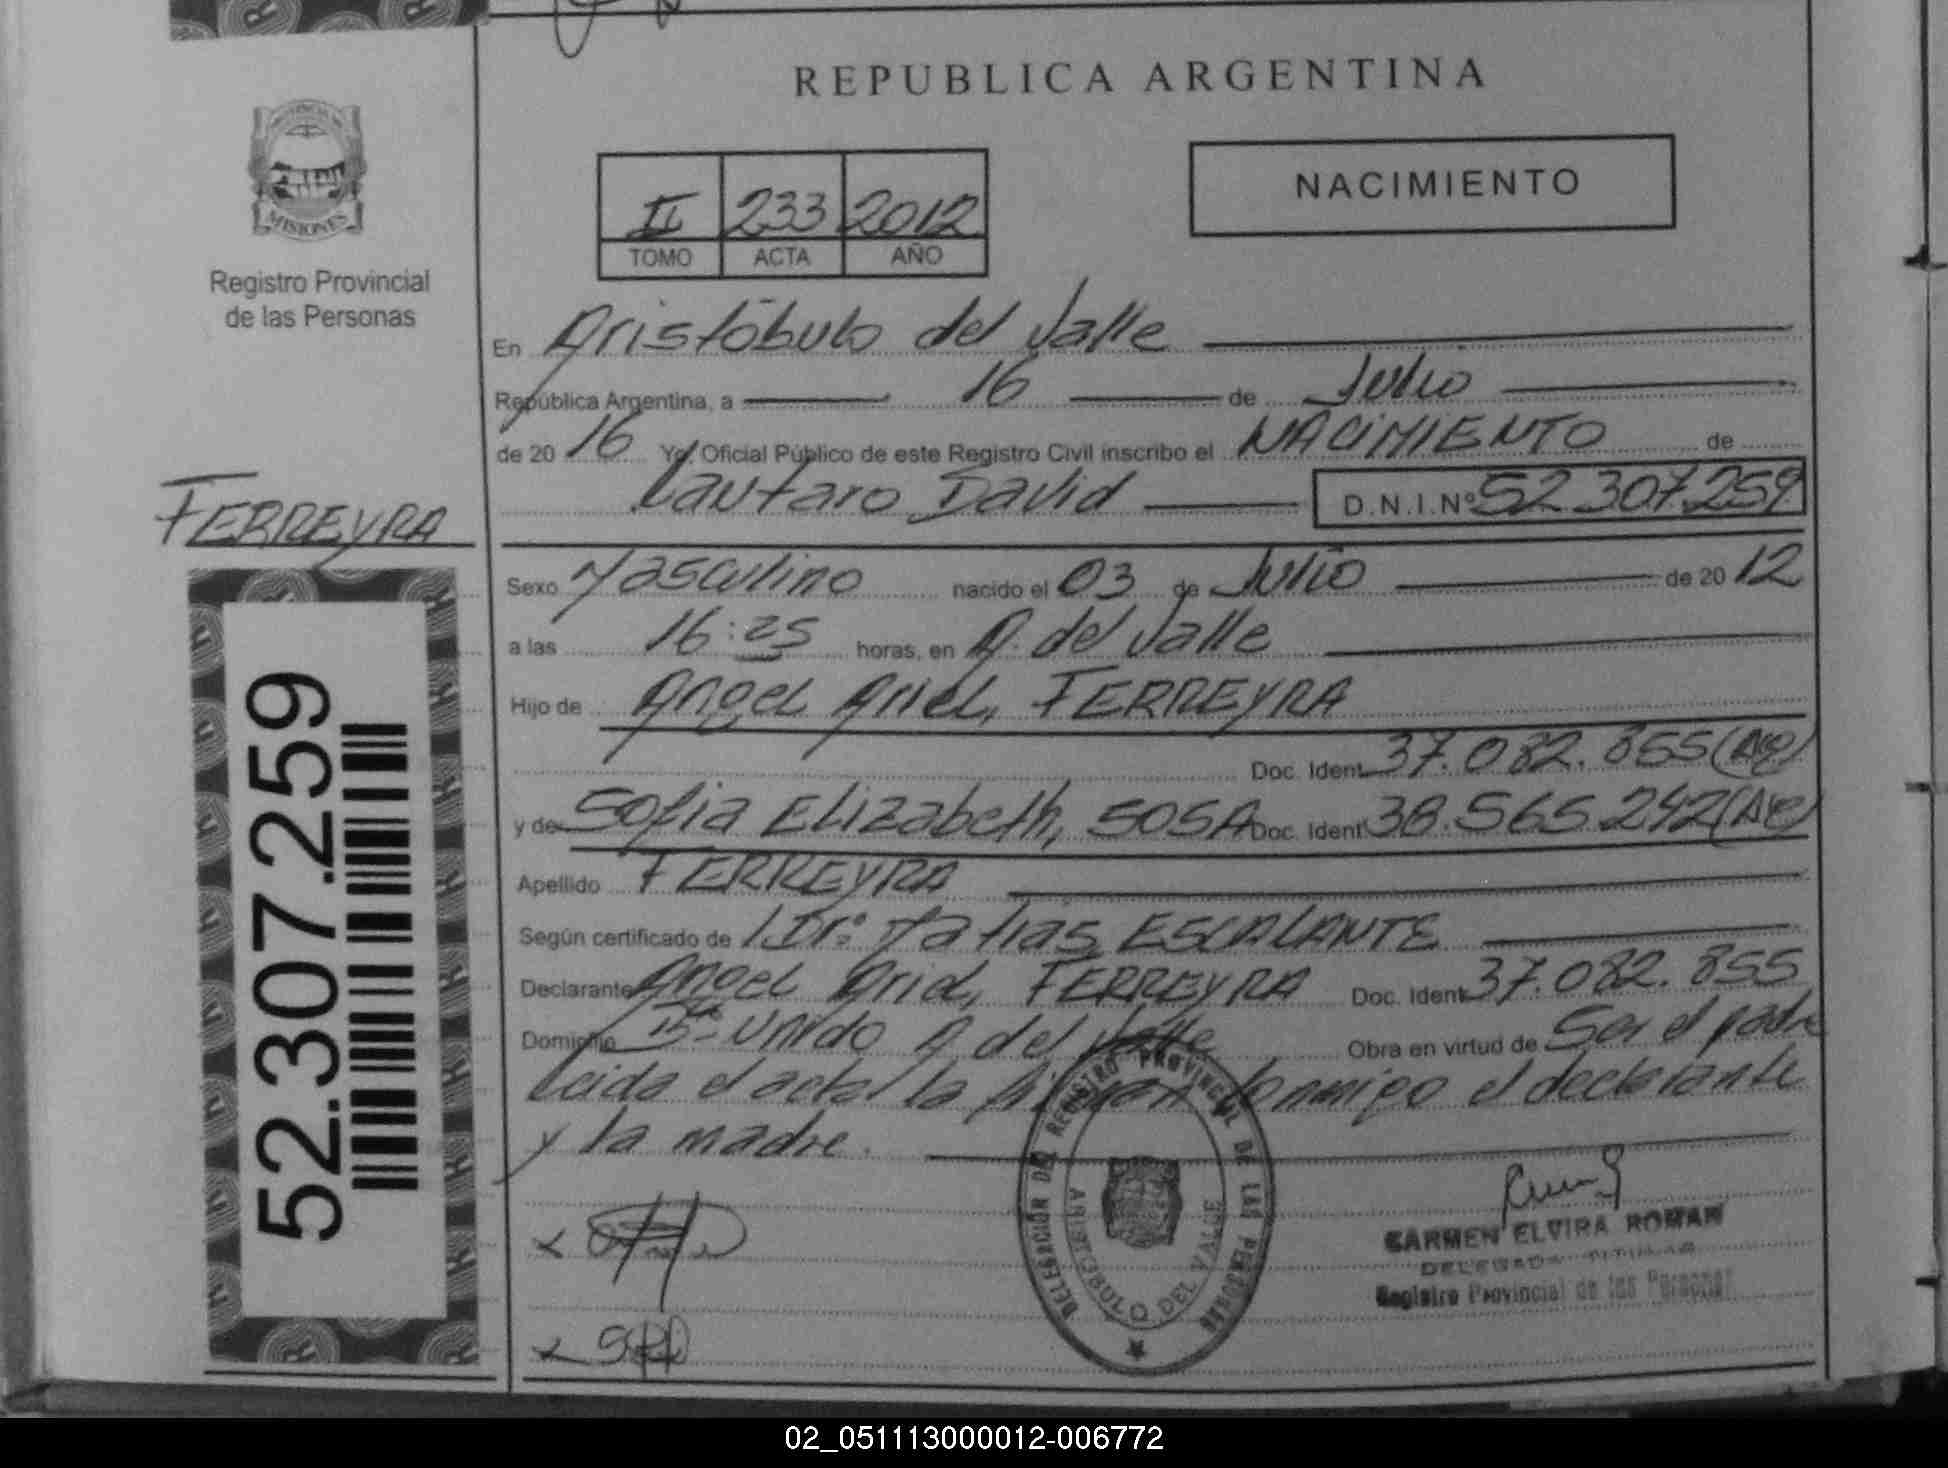 REPUBLICA ARGENTINA
NACIMIENTO
II 233 2012
TOMO ACTA AÑO
MISIONES
Registro Provincial
de las Personas
En Aristóbulo del Valle
República Argentina, a 16 de Julio
de 20 16 Yo, Oficial Público de este Registro Civil inscribo el NACIMIENTO de
Lautaro David D.N.I.Nº 52.307.259
FERREYRA
Sexo Masculino nacido el 03 de Julio de 20 12
a las 16:25 horas, en A. del Valle
Hijo de Angel Ariel, FERREYRA
Doc. Ident 37.082.855
y de Sofia Elizabeth, SOSA Doc. Ident 38.565.242
Apellido FERREYRA
Según certificado de Dr: Matias ESCALANTE
Declarante Angel Ariel, FERREYRA Doc. Ident 37.082.855
Domicilio Bº Unido A del Valle Obra en virtud de Ser el padre
Leida el acta la firman conmigo el declarante
y la madre.
52.307.259
DELEGACIÓN DEL REGISTRO PROVINCIAL DE LAS PERSONAS
ARISTOBULO DEL VALLE
CARMEN ELVIRA ROMAN
DELEGADA TITULAR
Registro Provincial de las Personas
02_051113000012-006772